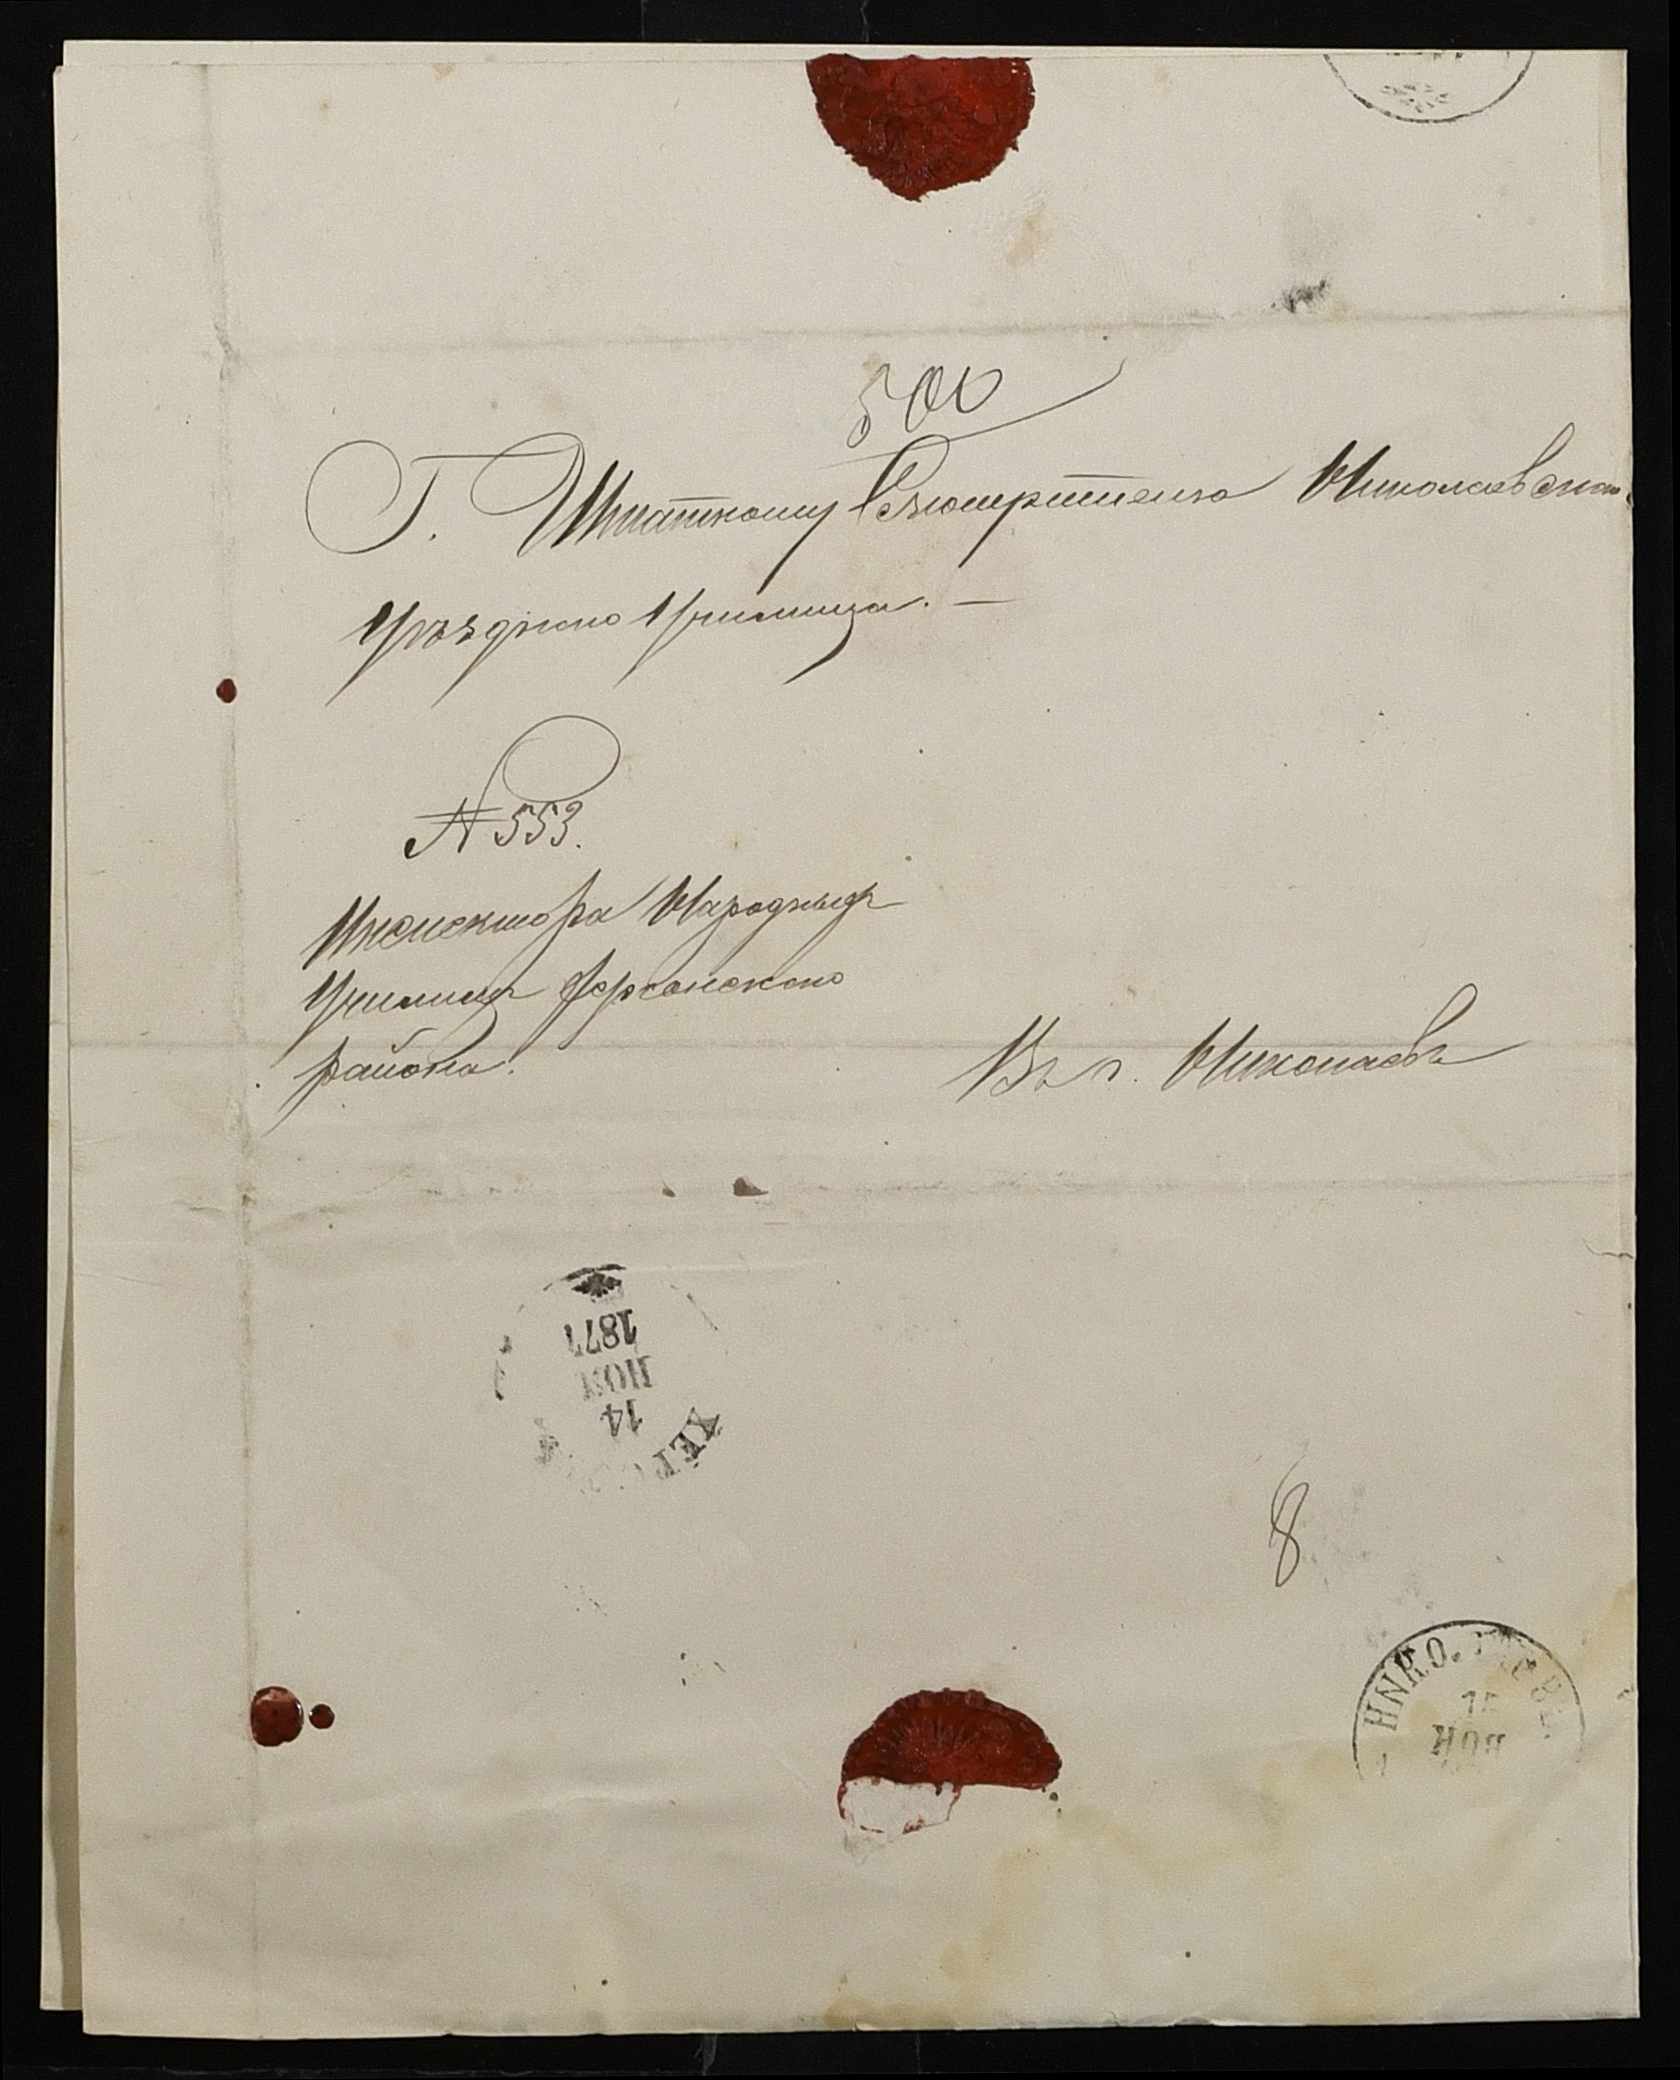 500
Г. Штатному Смотрителю Николаевскаго
Уѣзднаго Училища. —
№ 553.
Инспектора Народныхъ
Училищъ Херсонскаго
района.
Въ г. Николаевъ
ХЕРСОНЪ
14
НОЯ
1877
8
НИКОЛАЕВЪ
15
НОЯ